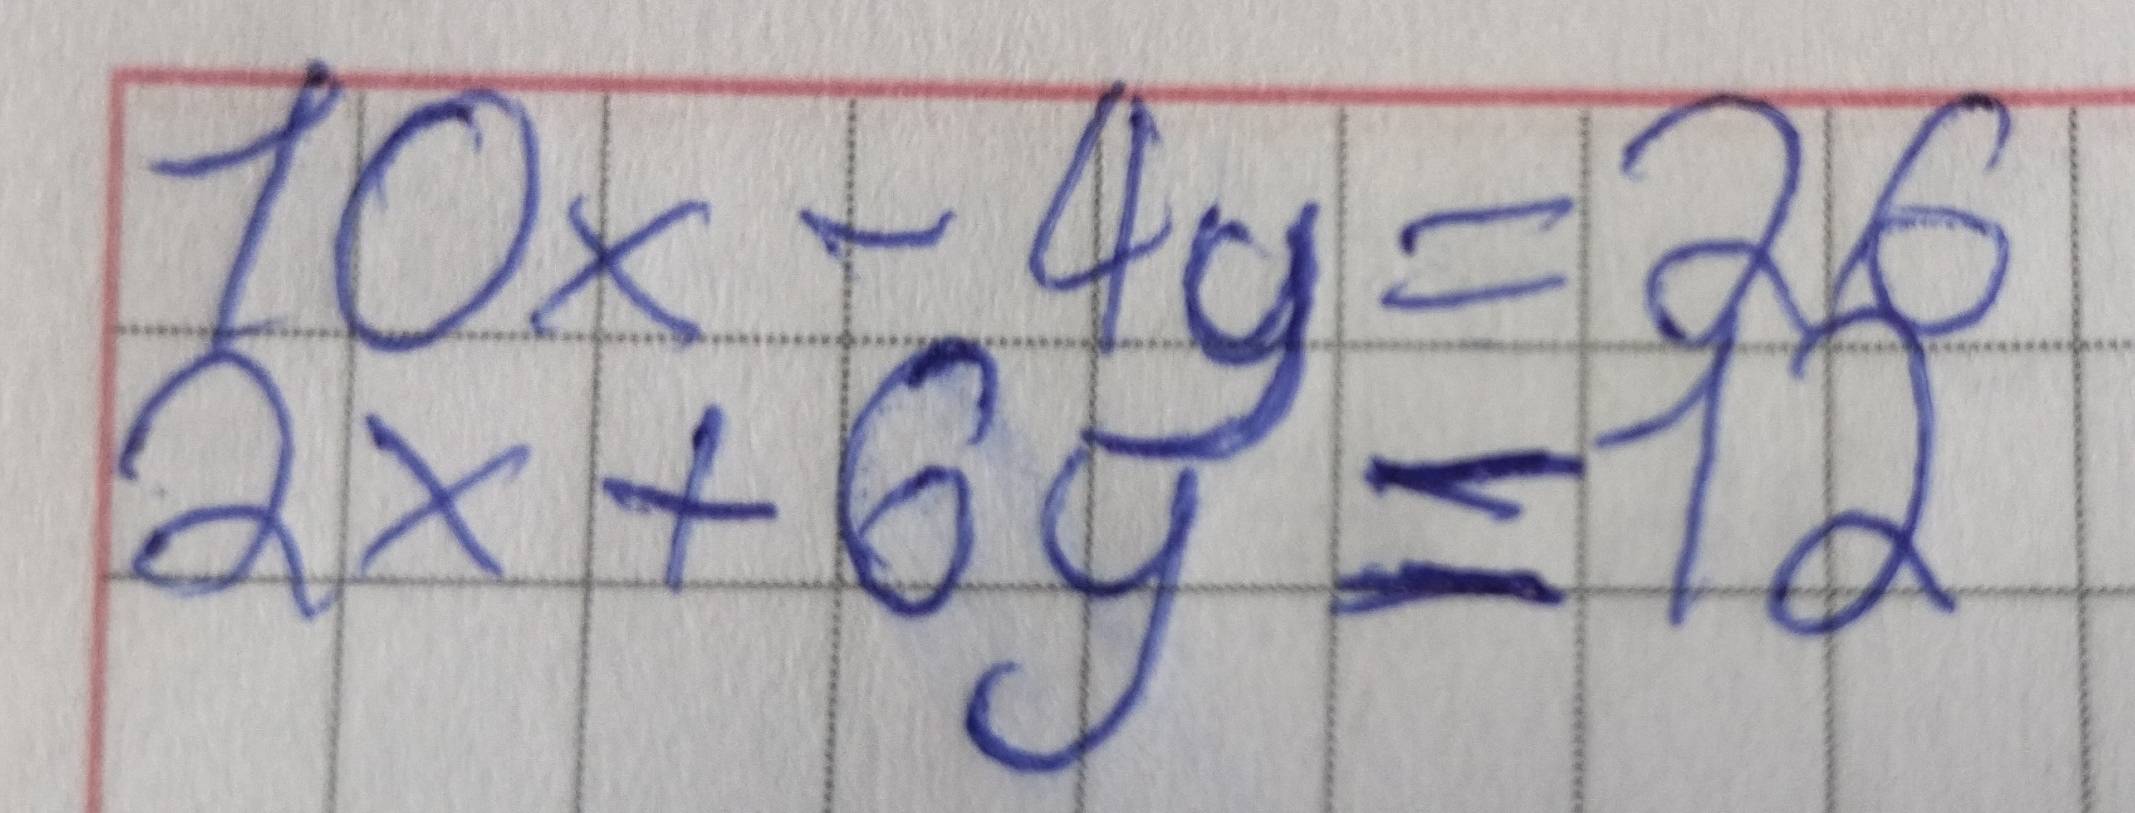 10x - 4y = 26
2x + 6y = 12